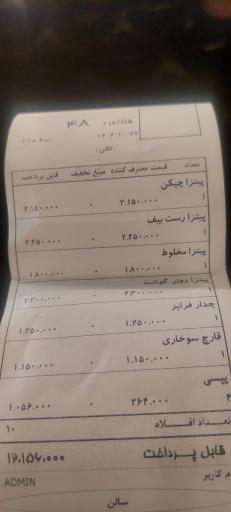 فاکتور ۴۸
۱۴۰۳/۱۰/۲۷
تلفن:
تعداد قیمت مصرف کننده مبلغ تخفیف قابل پرداخت
پیتزا چیکن
۱ ۲.۱۵۰.۰۰۰ ۰ ۲.۱۵۰.۰۰۰
پیتزا رست بیف
۱ ۲.۴۵۰.۰۰۰ ۰ ۲.۴۵۰.۰۰۰
پیتزا مخلوط
۱ ۱.۸۰۰.۰۰۰ ۰ ۱.۸۰۰.۰۰۰
پیتزا دونر گوشت
۱ ۲.۳۰۰.۰۰۰ ۰ ۲.۳۰۰.۰۰۰
چدار فرایز
۱ ۱.۲۵۰.۰۰۰ ۰ ۱.۲۵۰.۰۰۰
قارچ سوخاری
۱ ۱.۱۵۰.۰۰۰ ۰ ۱.۱۵۰.۰۰۰
پپسی
۴ ۲۶۴.۰۰۰ ۰ ۱.۰۵۶.۰۰۰
تعداد اقلام ۱۰
قابل پرداخت ۱۲.۱۵۶.۰۰۰
کاربر ADMIN
سالن